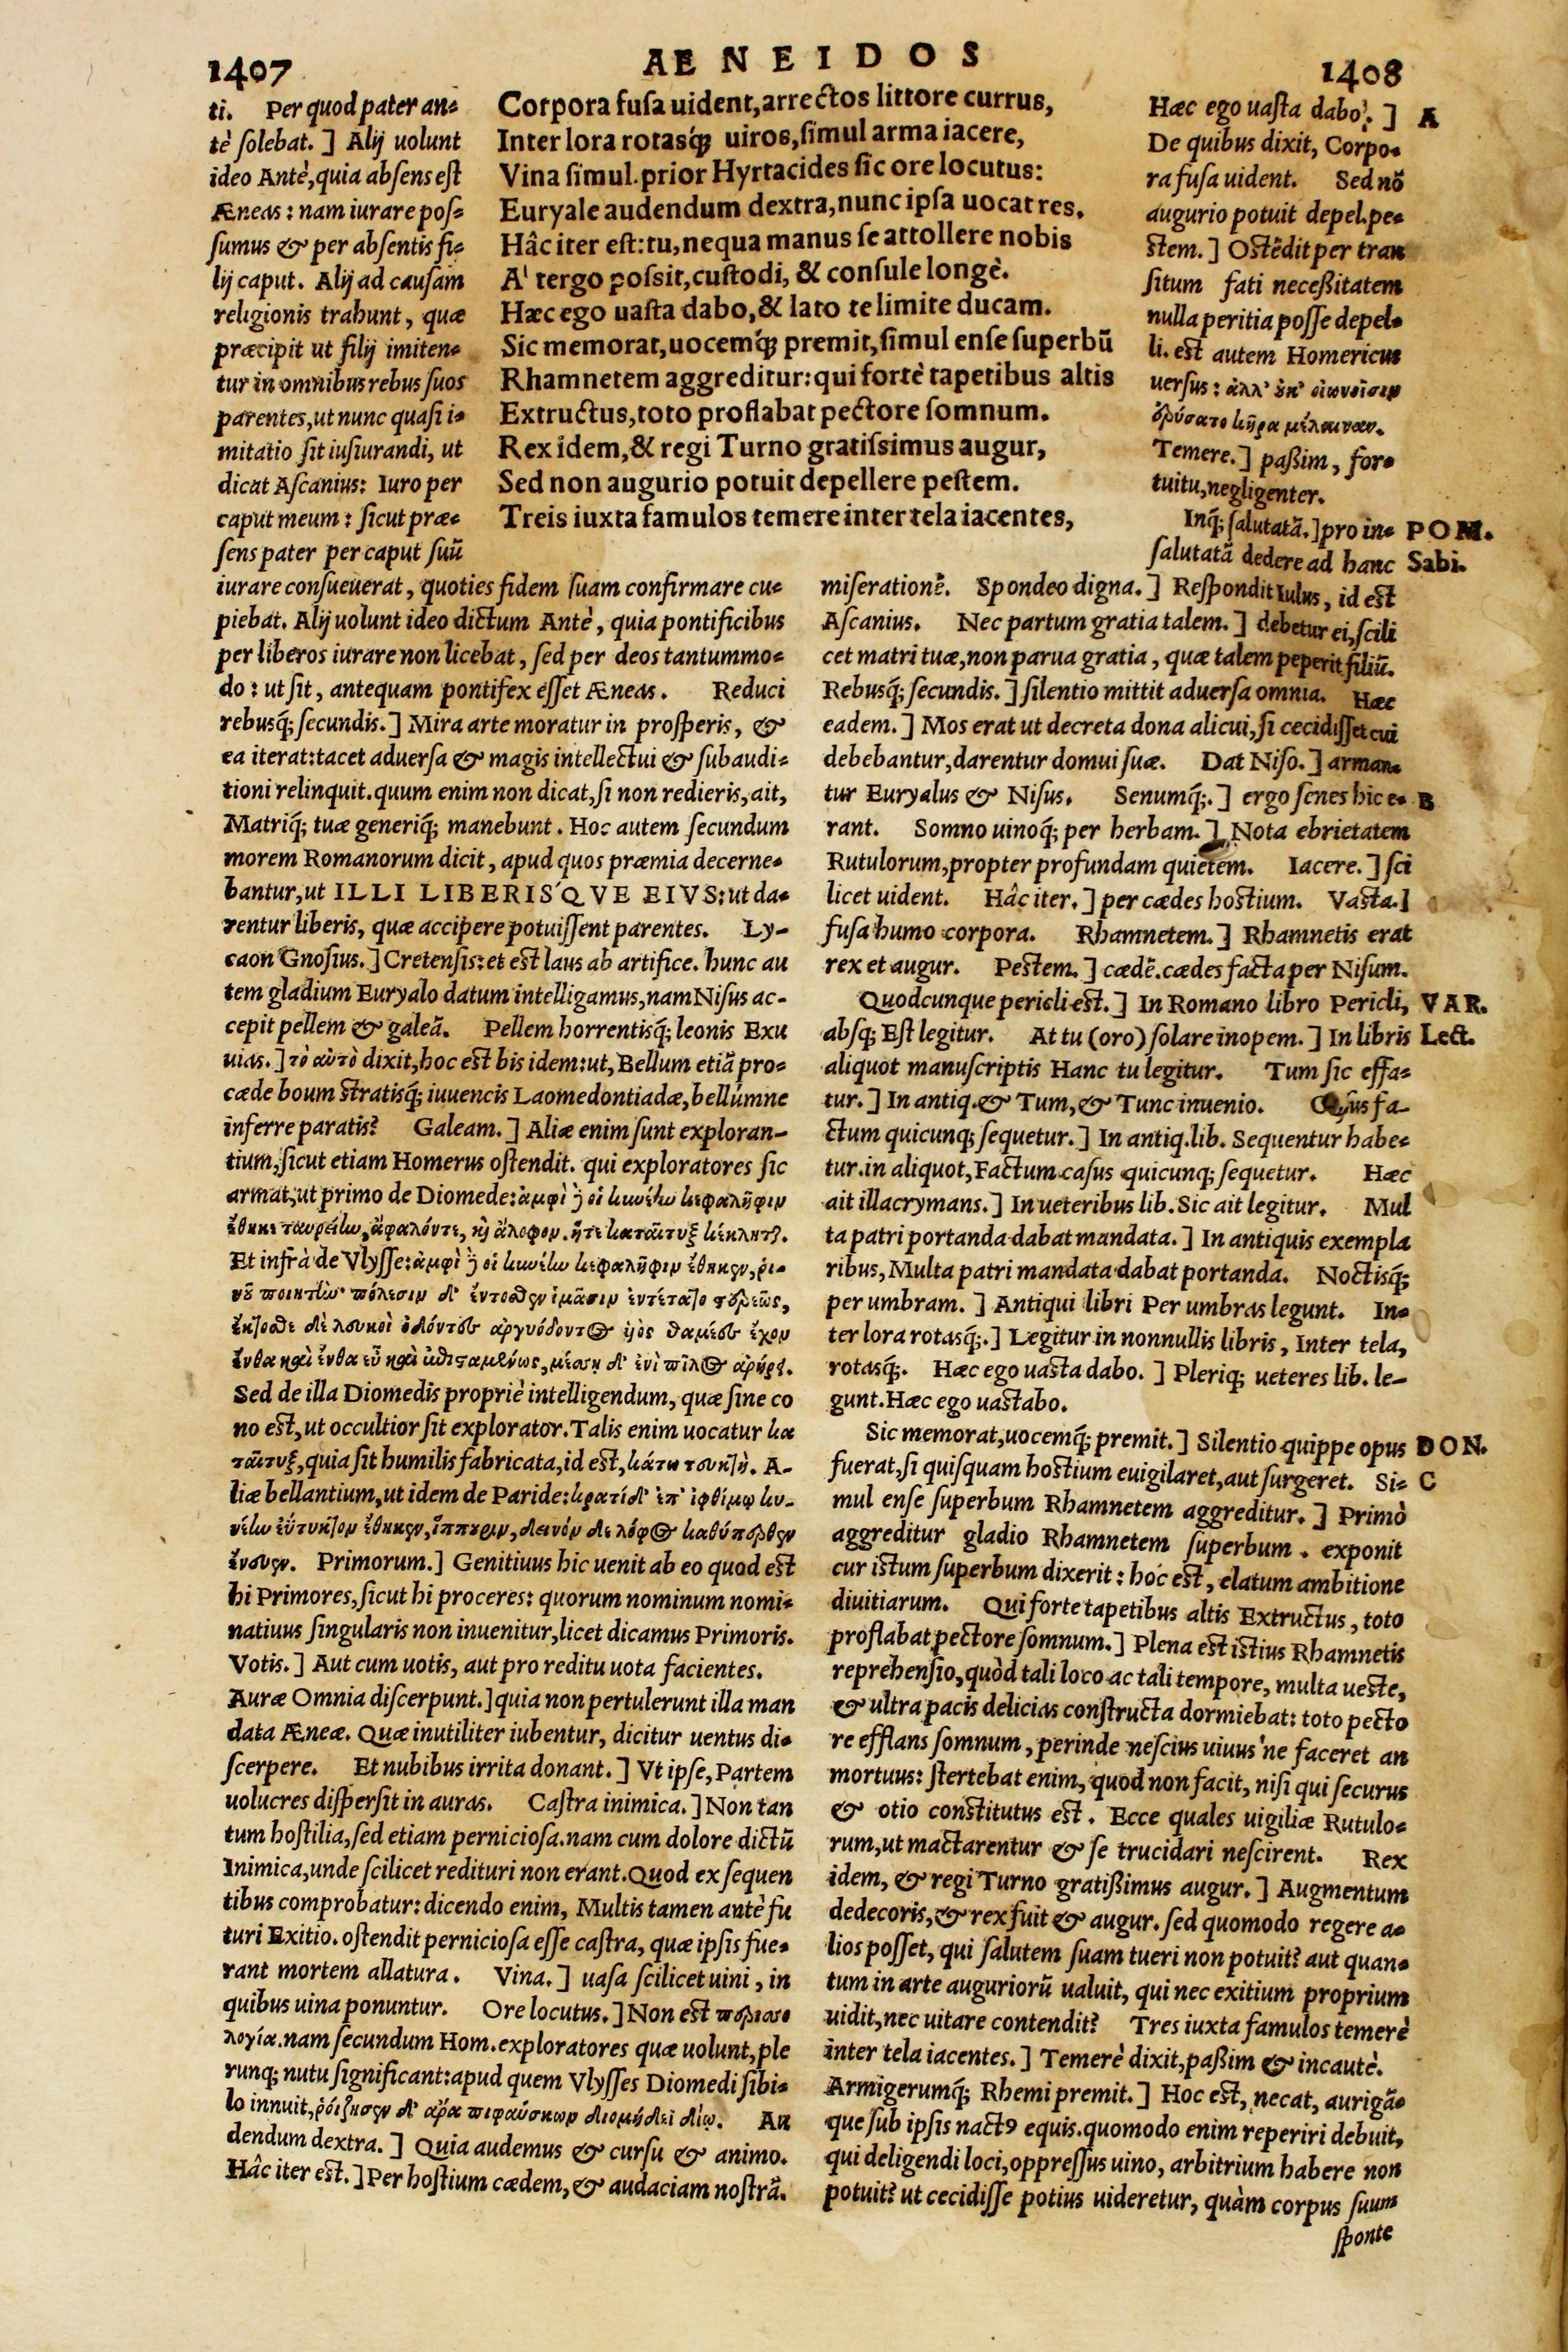 1407
AENEIDOS
1408
Corpora fusa uident, arrectos littore currus,
Inter lora rotasq́; uiros, simul arma iacere,
Vina simul. prior Hyrtacides sic ore locutus:
Euryale audendum dextra, nunc ipsa uocat res.
Hâc iter est: tu, nequa manus se attollere nobis
A' tergo possit, custodi, & consule longè.
Hæc ego uasta dabo, & lato te limite ducam.
Sic memorat, uocemq́; premit, simul ense superbũ
Rhamnetem aggreditur: qui fortè tapetibus altis
Extructus, toto proflabat pectore somnum.
Rex idem, & regi Turno gratissimus augur,
Sed non augurio potuit depellere pestem.
Treis iuxta famulos temere inter tela iacentes,
ti. Per quod pater an-
tè solebat.] Alij uolunt
ideo Antè, quia absens est
Æneas: nam iurare pos-
sumus & per absentis fi-
lij caput. Alij ad causam
religionis trahunt, quæ
præcipit ut filij imiten-
tur in omnibus rebus suos
parentes, ut nunc quasi i-
mitatio sit iusiurandi, ut
dicat Ascanius: Iuro per
caput meum: sicut præ-
sens pater per caput suũ
iurare consueuerat, quoties fidem suam confirmare cu-
piebat. Alij uolunt ideo dictum Antè, quia pontificibus
per liberos iurare non licebat, sed per deos tantummo-
do: ut sit, antequam pontifex esset Æneas. Reduci
rebusq́; secundis.] Mira arte moratur in prosperis, &
ea iterat: tacet aduersa & magis intellectui & subaudi-
tioni relinquit. quum enim non dicat, si non redieris, ait,
Matriq́; tuæ generiq́; manebunt. Hoc autem secundum
morem Romanorum dicit, apud quos præmia decerne-
bantur, ut ILLI LIBERIS'QVE EIVS: ut da-
rentur liberis, quæ accipere potuissent parentes. Ly-
caon Gnosius.] Cretensis: et est laus ab artifice. hunc au
tem gladium Euryalo datum intelligamus, nam Nisus ac-
cepit pellem & galeã. Pellem horrentisq́; leonis Exu
uias.] τὸ αὐτὸ dixit, hoc est bis idem: ut, Bellum etiã pro-
cæde boum stratisq́; iuuencis Laomedontiadæ, bellúmne
inferre paratis? Galeam.] Aliæ enim sunt exploran-
tium, sicut etiam Homerus ostendit. qui exploratores sic
armat, ut primo de Diomede: ἀμφὶ δέ οἱ κυνέην κεφαλῆφιν
ἔθηκε ταυρείην, ἄφαλόν τε, καὶ ἄλοφον. ἥτε καταῖτυξ κέκληται.
Et infrà de Vlysse: ἀμφὶ δέ οἱ κυνέην κεφαλῆφιν ἔθηκεν, ῥι-
νοῦ ποιητήν· πόλεσιν δ' ἔντοσθεν ἱμᾶσιν ἐντέτατο στερεῶς,
ἔκτοσθε δὲ λευκοὶ ὀδόντες ἀργυόδοντος ὑὸς θαμέες ἔχον
ἔνθα καὶ ἔνθα εὖ καὶ ἐπισταμένως, μέσσῃ δ' ἐνὶ πῖλος ἀρήρει.
Sed de illa Diomedis propriè intelligendum, quæ sine co
no est, ut occultior sit explorator. Talis enim uocatur κα
ταῖτυξ, quia sit humilis fabricata, id est, κάτω τευκτή. A-
liæ bellantium, ut idem de Paride: κρατὶ δ' ἐπ' ἰφθίμῳ κυ-
νέην εὔτυκτον ἔθηκεν, ἵππουριν, δεινὸν δὲ λόφος καθύπερθεν
ἔνευεν. Primorum.] Genitiuus hic uenit ab eo quod est
hi Primores, sicut hi proceres: quorum nominum nomi-
natiuus singularis non inuenitur, licet dicamus Primoris.
Votis.] Aut cum uotis, aut pro reditu uota facientes.
Auræ Omnia discerpunt.] quia non pertulerunt illa man
data Æneæ. Quæ inutiliter iubentur, dicitur uentus di-
scerpere. Et nubibus irrita donant.] Vt ipse, Partem
uolucres dispersit in auras. Castra inimica.] Non tan
tum hostilia, sed etiam perniciosa. nam cum dolore dictũ
Inimica, unde scilicet redituri non erant. Quod ex sequen
tibus comprobatur: dicendo enim, Multis tamen antè fu
turi Exitio. ostendit perniciosa esse castra, quæ ipsis fue-
rant mortem allatura. Vina.] uasa scilicet uini, in
quibus uina ponuntur. Ore locutus.] Non est περισσο
λογία. nam secundum Hom. exploratores quæ uolunt, ple
runq; nutu significant: apud quem Vlysses Diomedi sibi-
lo innuit, ῥοίζησεν δ' ἄρα πιφαύσκων διομήδεϊ δίῳ. Au
dendum dextra.] Quia audemus & cursu & animo.
Hâc iter est.] Per hostium cædem, & audaciam nostrã.
Hæc ego uasta dabo.] A
De quibus dixit, Corpo-
ra fusa uident. Sed nõ
augurio potuit depel. pe-
stem.] Ostẽdit per tran
situm fati necessitatem
nulla peritia posse depel-
li. est autem Homericus
uersus: ἀλλ' οὐκ οἰωνοῖσιν
ἐρύσατο κῆρα μέλαιναν.
Temere.] passim, for-
tuitu, negligenter.
Inq́; salutatã.] pro in- POM.
salutatã dedere ad hanc Sabi.
miserationẽ. Spondeo digna.] Respondit Iulus, id est
Ascanius. Nec partum gratia talem.] debetur ei, scili
cet matri tuæ, non parua gratia, quæ talem peperit filiũ.
Rebusq́; secundis.] silentio mittit aduersa omnia. Hæc
eadem.] Mos erat ut decreta dona alicui, si cecidisset cui
debebantur, darentur domui suæ. Dat Niso.] arman-
tur Euryalus & Nisus. Senumq́;.] ergo senes hic e- B
rant. Somno uinoq́; per herbam.] Nota ebrietatem
Rutulorum, propter profundam quietem. Iacere.] sci
licet uident. Hâc iter.] per cædes hostium. Vasta.]
fusa humo corpora. Rhamnetem.] Rhamnetis erat
rex et augur. Pestem.] cædẽ. cædes facta per Nisum.
Quodcunque pericli est.] In Romano libro Pericli, VAR.
absq; Est legitur. At tu (oro) solare inopem.] In libris Lect.
aliquot manuscriptis Hanc tu legitur. Tum sic effa-
tur.] In antiq. & Tum, & Tunc inuenio. fa-
ctum quicunq; sequetur.] In antiq. lib. Sequentur habe-
tur. in aliquot, Factum casus quicunq; sequetur. Hæc
ait illacrymans.] In ueteribus lib. Sic ait legitur. Mul
ta patri portanda dabat mandata.] In antiquis exempla
ribus, Multa patri mandata dabat portanda. Noctisq́;
per umbram.] Antiqui libri Per umbras legunt. In-
ter lora rotasq́;.] Legitur in nonnullis libris, Inter tela,
rotasq́;. Hæc ego uasta dabo.] Pleriq; ueteres lib. le-
gunt. Hæc ego uastabo.
Sic memorat, uocemq́; premit.] Silentio quippe opus DON.
fuerat, si quisquam hostium euigilaret, aut surgeret. Si- C
mul ense superbum Rhamnetem aggreditur.] Primò
aggreditur gladio Rhamnetem superbum. exponit
cur istum superbum dixerit: hoc est, elatum ambitione
diuitiarum. Qui forte tapetibus altis Extructus, toto
proflabat pectore somnum.] Plena est istius Rhamnetis
reprehensio, quòd tali loco ac tali tempore, multa ueste,
& ultra pacis delicias constructa dormiebat: toto pecto
re efflans somnum, perinde nescius uiuus'ne faceret an
mortuus: stertebat enim, quod non facit, nisi qui securus
& otio constitutus est. Ecce quales uigiliæ Rutulo-
rum, ut mactarentur & se trucidari nescirent. Rex
idem, & regi Turno gratissimus augur.] Augmentum
dedecoris, & rex fuit & augur. sed quomodo regere a-
lios posset, qui salutem suam tueri non potuit? aut quan-
tum in arte auguriorũ ualuit, qui nec exitium proprium
uidit, nec uitare contendit? Tres iuxta famulos temerè
inter tela iacentes.] Temerè dixit, passim & incautè.
Armigerumq́; Rhemi premit.] Hoc est, necat, aurigã-
que sub ipsis nactꝰ equis. quomodo enim reperiri debuit,
qui deligendi loci, oppressus uino, arbitrium habere non
potuit? ut cecidisse potius uideretur, quàm corpus suum
sponte